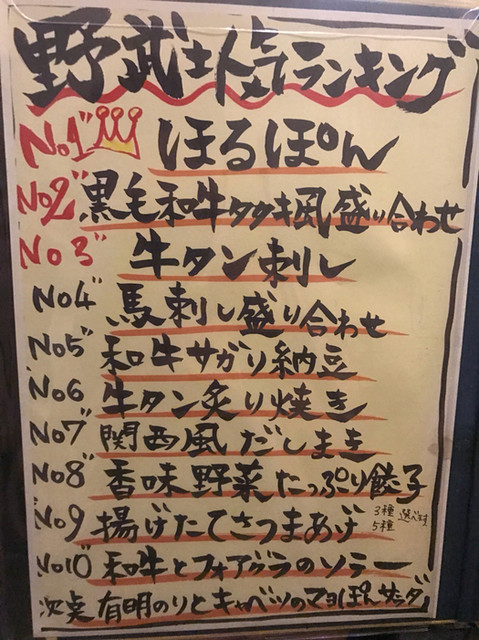 野武士人気ランキング
No1 ほるぽん
No2 黒毛和牛タタキ風盛り合わせ
No3 牛タン刺し
No4 馬刺し盛り合わせ
No5 和牛サガリ納豆
No6 牛タン炙り焼き
No7 関西風だしまき
No8 香味野菜たっぷり餃子
No9 揚げたてさつまあげ 3種 5種 選べます
No10 和牛とフォアグラのソテー
次点 有明のりとキャベツのマヨぽんサラダ